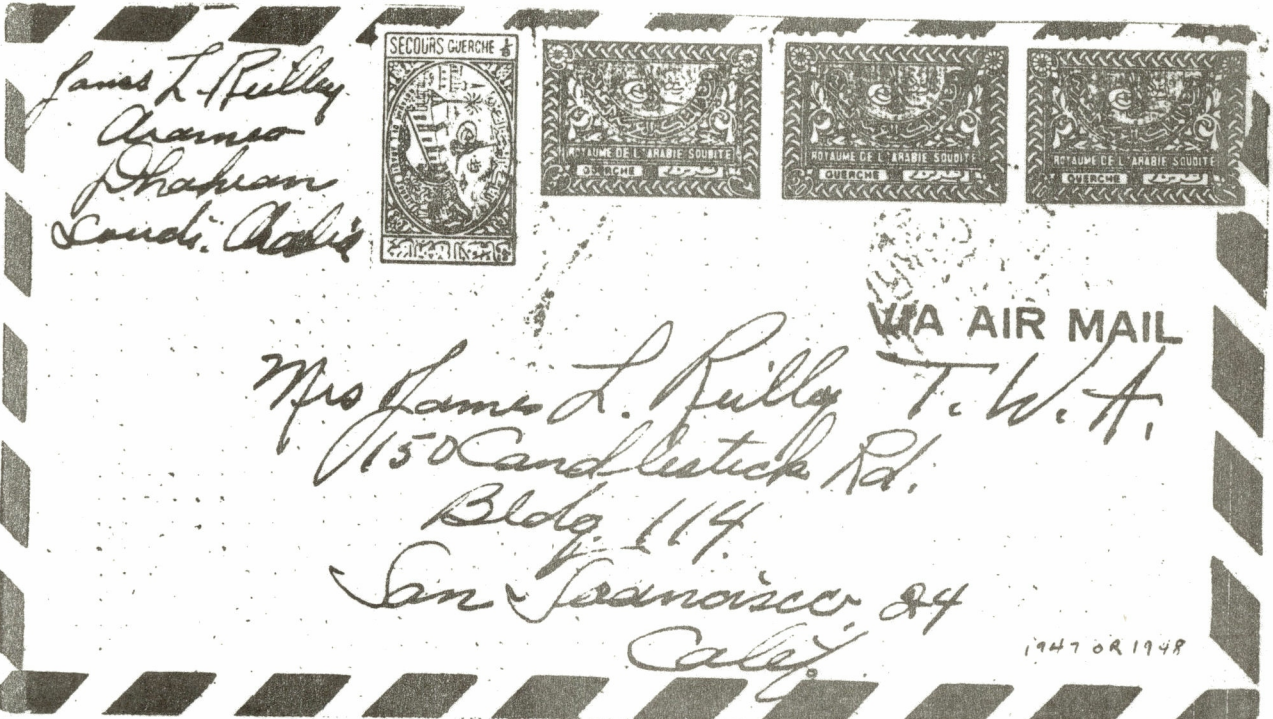 James L. Reilley
Aramco
Dhahran
Saudi. Arabia
SECOURS GUERCHE 1/8
ROYAUME DE L'ARABIE SOUDITE
GUERCHE
ROYAUME DE L'ARABIE SOUDITE
GUERCHE
ROYAUME DE L'ARABIE SOUDITE
GUERCHE
VIA AIR MAIL
T. W. A.
Mrs James L. Reilley
150 Candlestick Rd.
Bldg. 114.
San Francisco. 24
Calif.
1947 OR 1948